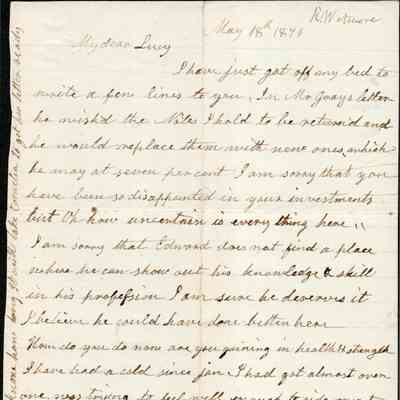 R Wetmore
May 18th 1870
My dear Lucy
I have just got off my bed to
write a few lines to you, In Mr Grays letter
he wish'd the Notes I hold to be return'd and
he would replace them with new ones, which
he may at seven percent I am sorry that you
have been so disappointed in your investments
but Oh how uncertain is every thing here,,
I am sorry that Edward does not find a place
where he can show out his knowledge & skill
in his profession I am sure he deserves it
I believe he could have done better here
How do you do now are you gaining in health & strength
I have had a cold since Jan I had got almost over
one was trying to feel well enough to ride out
how long it will take to get this letter ready